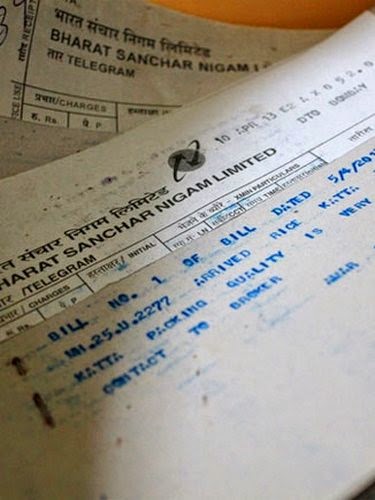 भारत संचार निगम लिमिटेड
BHARAT SANCHAR NIGAM
तार TELEGRAM
प्रभार/CHARGES
रु. Rs. पै. P.
10 APR 13
DTO BOMBAY
संचार निगम लिमिटेड
BHARAT SANCHAR NIGAM LIMITED
/TELEGRAM
/ CHARGES
/ INITIAL
PARTICULARS
रु. Rs. पै. P.
BILL NO. 1 OF BILL DATED 5/4/20
MH.25.U.2277 ARRIVED RICE KATTA
KATTA PACKING QUALITY IS VERY
CONTACT TO BROKER AMAR